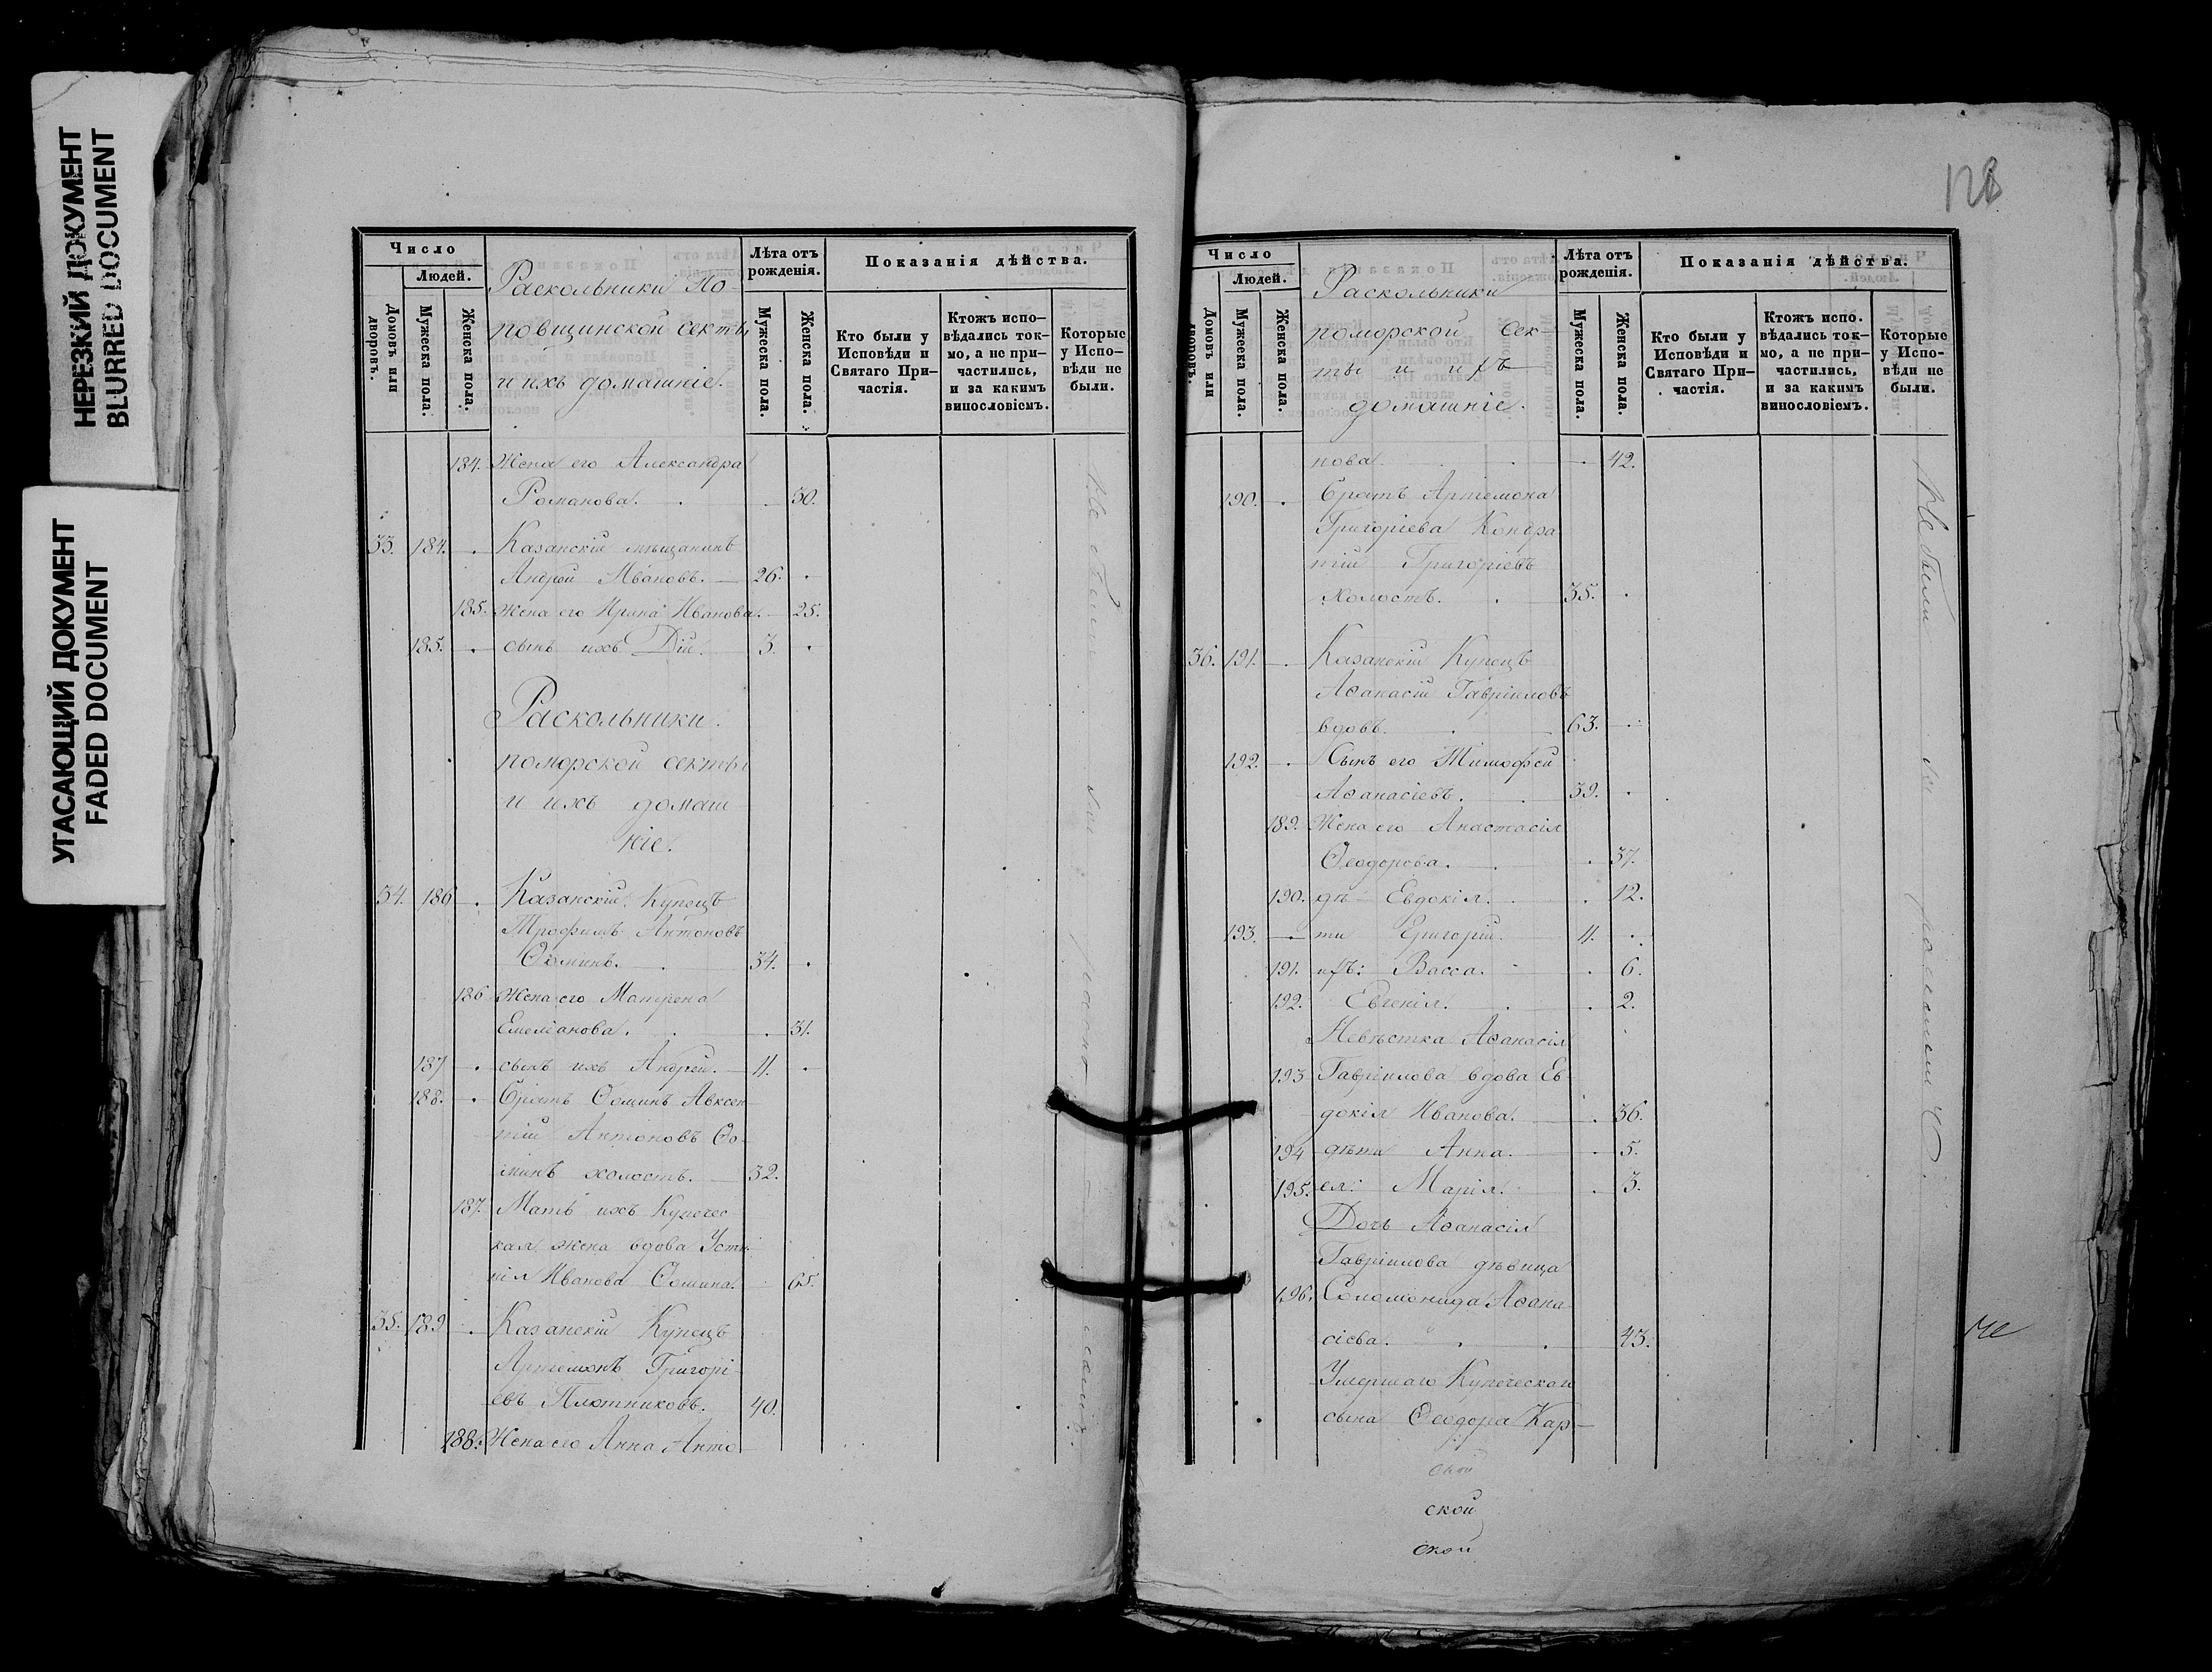 НЕРЕЗКИЙ ДОКУМЕНТ
BLURRED DOCUMENT
УГАСАЮЩИЙ ДОКУМЕНТ
FADED DOCUMENT
Число
Людей.
Домовъ или дворовъ.
Мужеска пола.
Женска пола.
Раскольники по-
повщинской секты
и ихъ домашніе.
Лѣта отъ рожденія.
Мужеска пола.
Женска пола.
Показанія дѣйства.
Кто были у Исповѣди и Святаго При-частія.
Ктожъ испо-вѣдались ток-мо, а не при-частились, и за какимъ винословіемъ.
Которые у Испо-вѣди не были.
184. Жена его Александра
Романова. 50.
33. 184. Казанскій мѣщанинъ
Андрей Ивановъ. 26.
185. Жена его Ирина Иванова. 25.
185. сынъ ихъ Дій. 3.
Раскольники
поморской секты
и ихъ домаш
ніе.
34. 186 Казанскій Купецъ
Трофимъ Антоновъ
Ѳоминъ. 34.
186 Жена его Матрена
Емеліанова. 31.
187 сынъ ихъ Андрей. 4.
188. Братъ Ѳоминъ Авксен
тій Антоновъ Ѳо-
минъ холостъ. 32.
187. Мать ихъ Купечес
кая жена вдова Усти
нія Иванова Ѳомина. 65.
35. 189 Казанскій Купецъ
Артемонъ Григорі-
евъ Плотниковъ. 40.
188. Жена его Анна Анто
Не были
по
128
Число
Людей.
Домовъ или дворовъ.
Мужеска пола.
Женска пола.
Раскольники
поморской сек-
ты и ихъ
домашніе.
Лѣта отъ рожденія.
Мужеска пола.
Женска пола.
Показанія дѣйства.
Кто были у Исповѣди и Святаго При-частія.
Ктожъ испо. вѣдались ток-мо, а не при-частились, и за какимъ винословіемъ.
Которые у Испо-вѣди не были.
нова 42.
190. Братъ Артемона
Григоріева Кондра
тій Григоріевъ
холостъ. 35.
36. 191. Казанскій Купецъ
Аѳанасій Гавріиловъ
вдовъ. 63.
192. Сынъ его Тимофей
Аѳанасіевъ. 39.
189. Жена его Анастасія
Ѳеодорова. 37.
190. дѣ Евдокія. 12.
193. ти Григорій. 4.
191. ихъ: Васса. 6.
192. Евгенія. 2.
Невѣстка Аѳанасія
193 Гавріилова вдова Ев-
докія Иванова. 36.
194 дѣти Анна. 5.
195. ея: Марія. 3.
Дочь Аѳанасія
Гавріилова дѣвица
196. Соломонида Аѳана
сіева. 43.
Умершаго Купеческаго
сына Ѳеодора Кар-
Не были
по
Не
ской
ской
ской